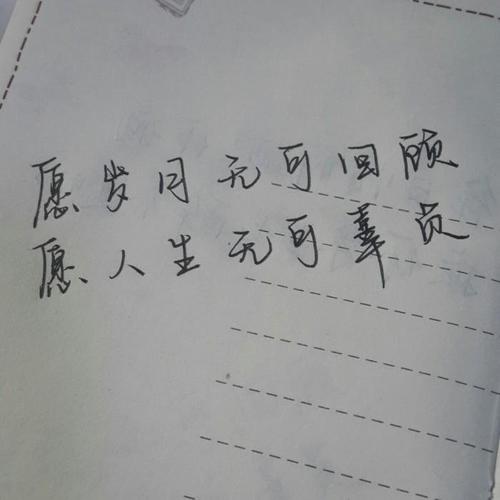 愿岁月无可回顾
愿人生无可辜负